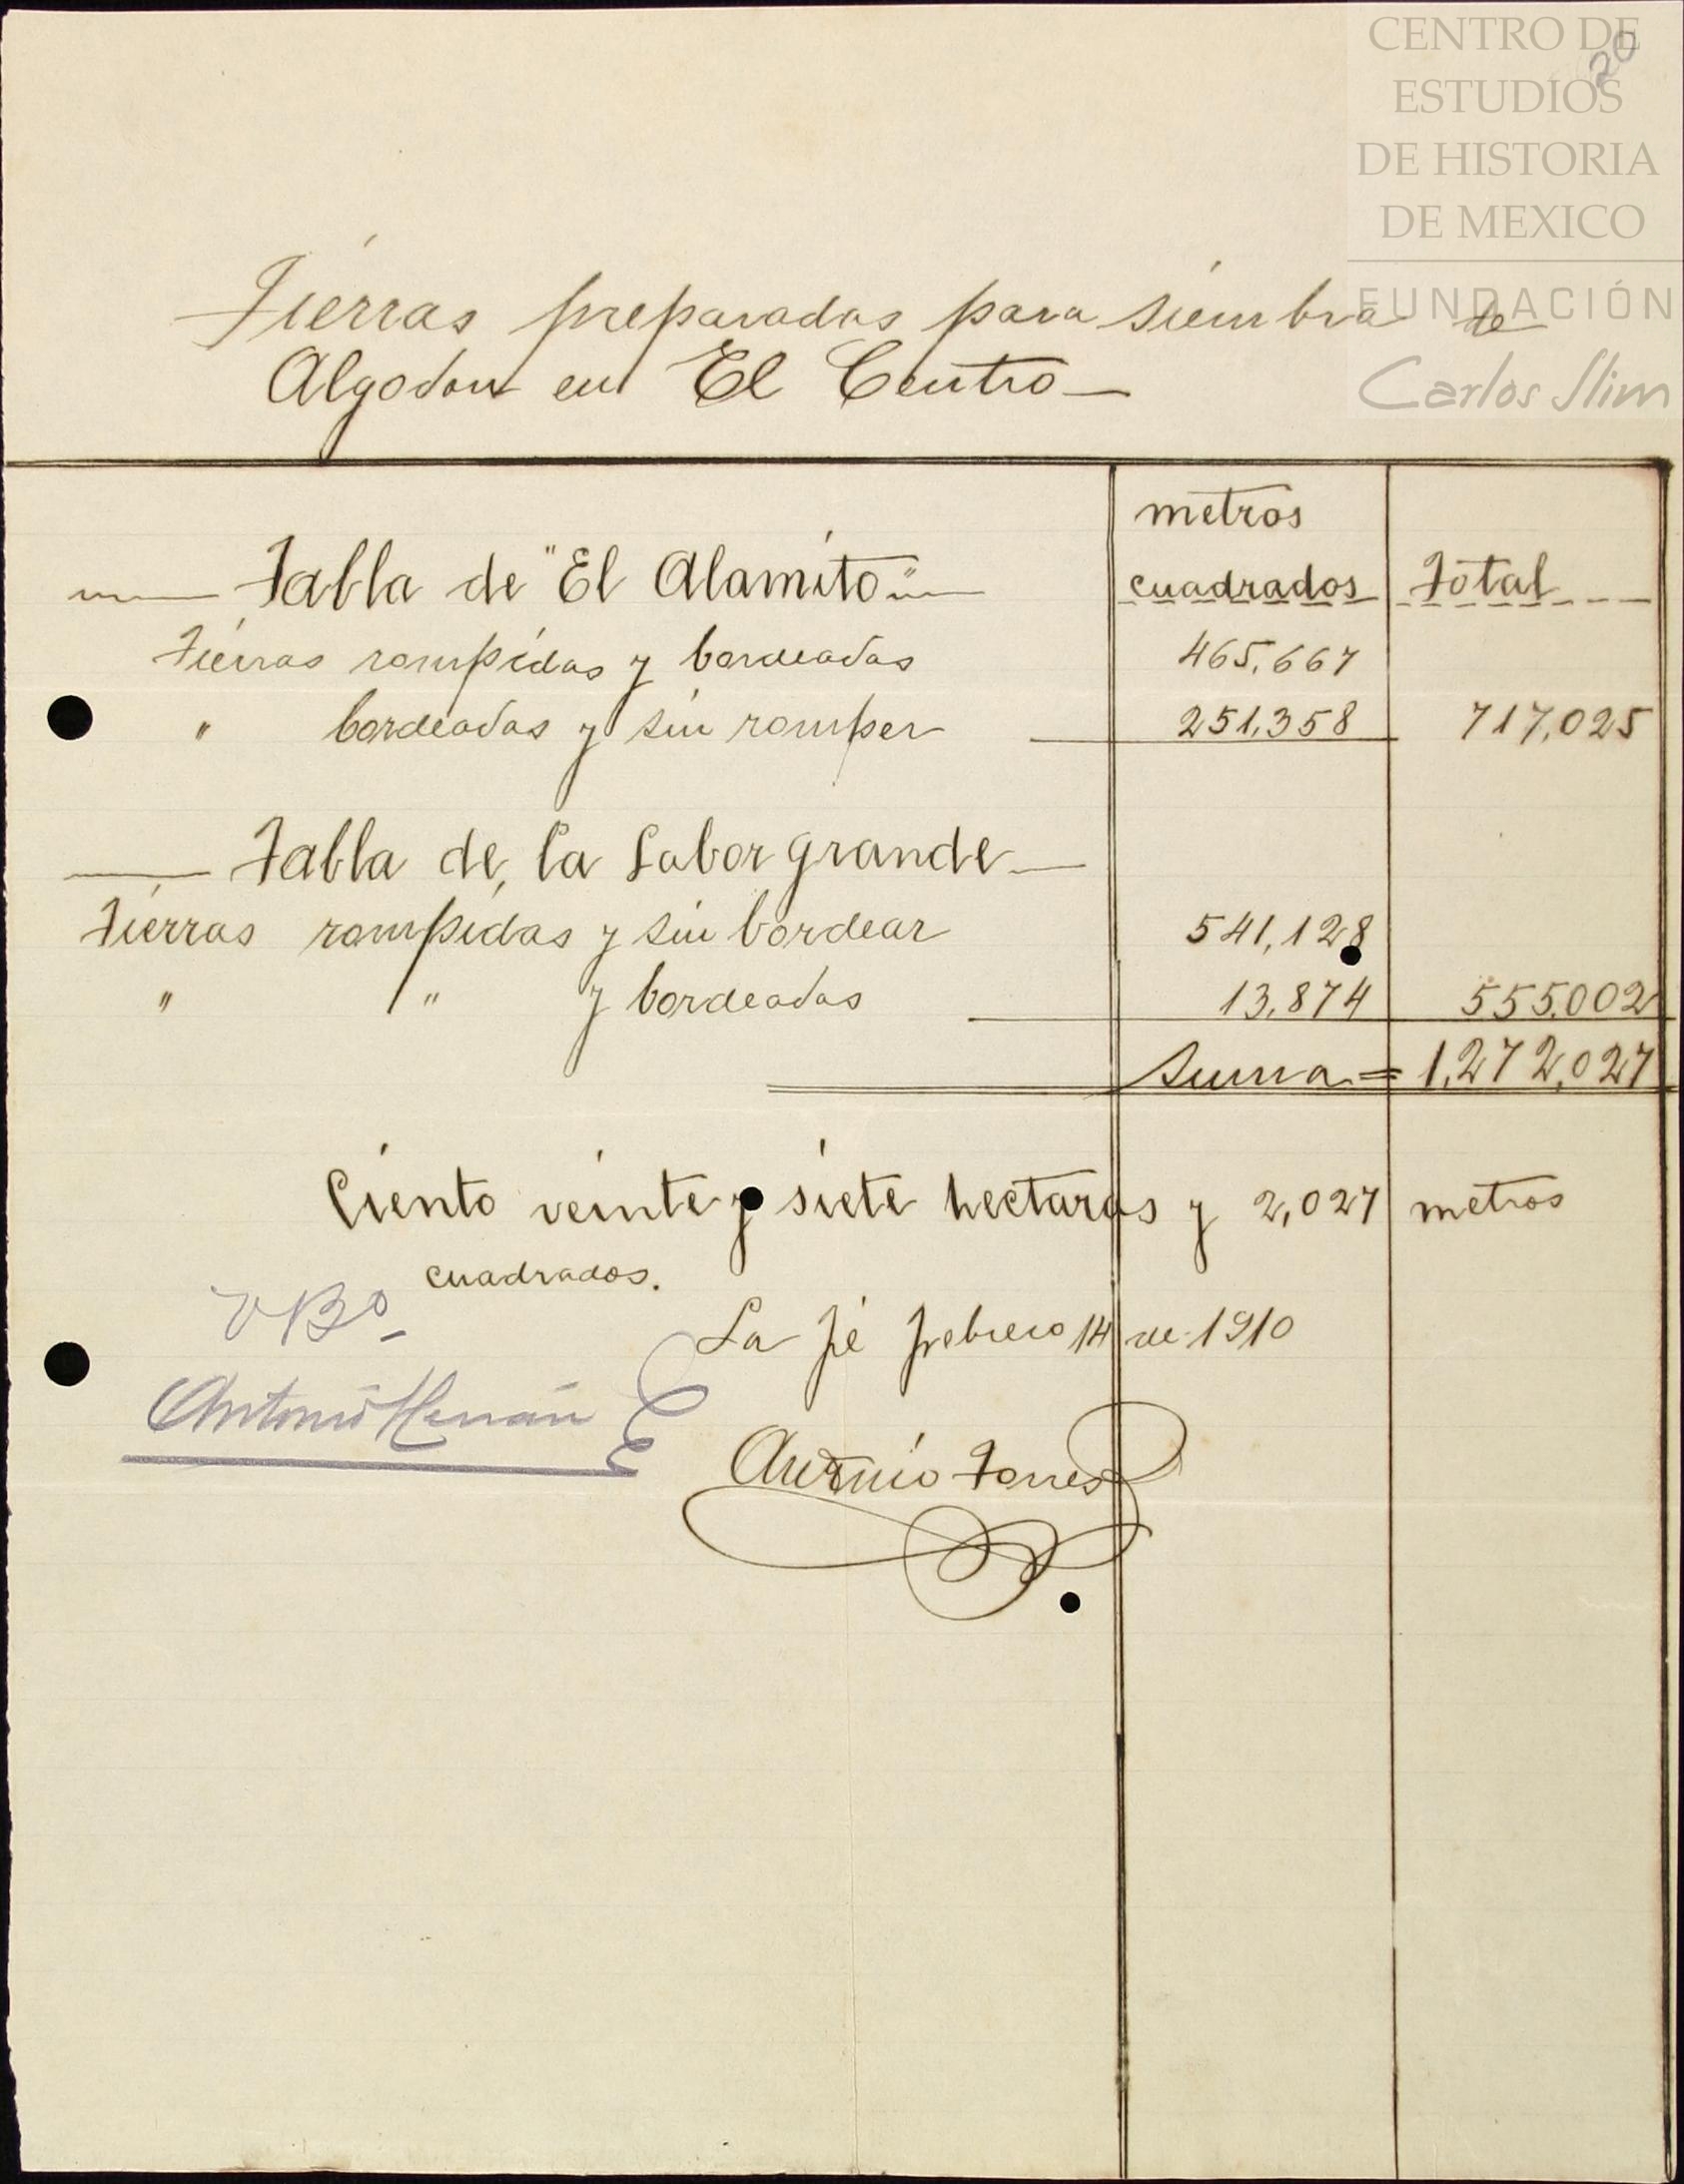 CENTRO DE
ESTUDIOS
DE HISTORIA
DE MEXICO
FUNDACIÓN
Carlos Slim
20
Tierras preparadas para siembra de
Algodon en El Centro
metros
Tabla de "El Alamito" cuadrados Total
Tierras rompidas y bordeadas 465,667
" bordeadas y sin romper 251,358 717,025
Tabla de la Labor grande
Tierras rompidas y sin bordear 541,128
" " y bordeadas 13,874 555,002
Suma = 1,272,027
Ciento veinte y siete hectaras y 2,027 metros
cuadrados.
VBo
La Fé febrero 14 de 1910
Antonio
Torres